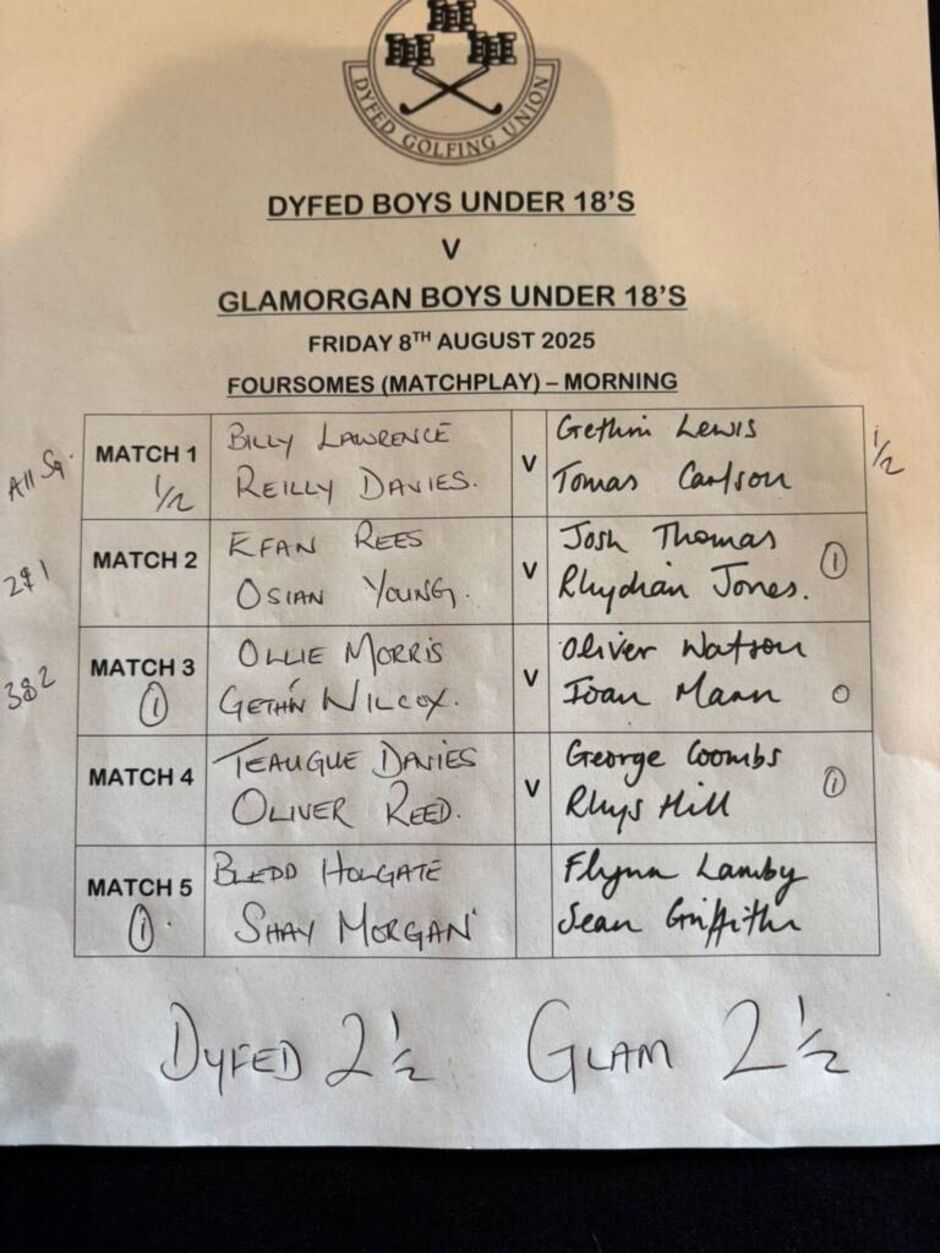 DYFED GOLFING UNION
DYFED BOYS UNDER 18'S
V
GLAMORGAN BOYS UNDER 18'S
FRIDAY 8TH AUGUST 2025
FOURSOMES (MATCHPLAY) – MORNING
All Sq. MATCH 1 BILLY LAWRENCE V Gethin Lewis 1/2
1/2 REILLY DAVIES. Tomas Carlson
2&1 MATCH 2 EFAN REES V Josh Thomas 1
OSIAN YOUNG. Rhydian Jones.
3&2 MATCH 3 OLLIE MORRIS V Oliver Watson
1 GETHIN WILCOX. Ioan Mann 0
MATCH 4 TEAUGUE DAVIES V George Coombs 1
OLIVER REED. Rhys Hill
MATCH 5 BLEDD HOLGATE Flynn Lamby
1 SHAY MORGAN Sean Griffiths
DYFED 2 1/2 GLAM 2 1/2